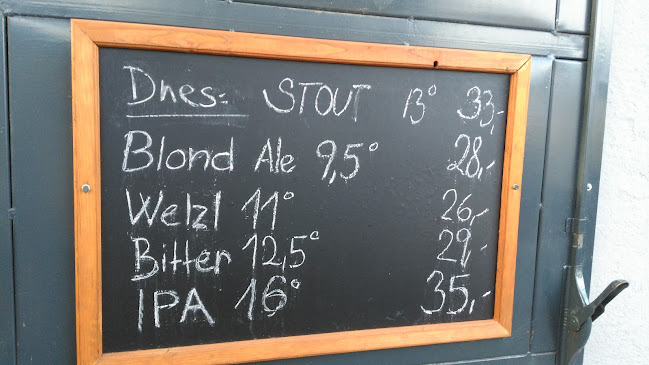 Dnes: STOUT 13° 33,-
Blond Ale 9,5° 28,-
Welzl 11° 26,-
Bitter 12,5° 29,-
IPA 16° 35,-